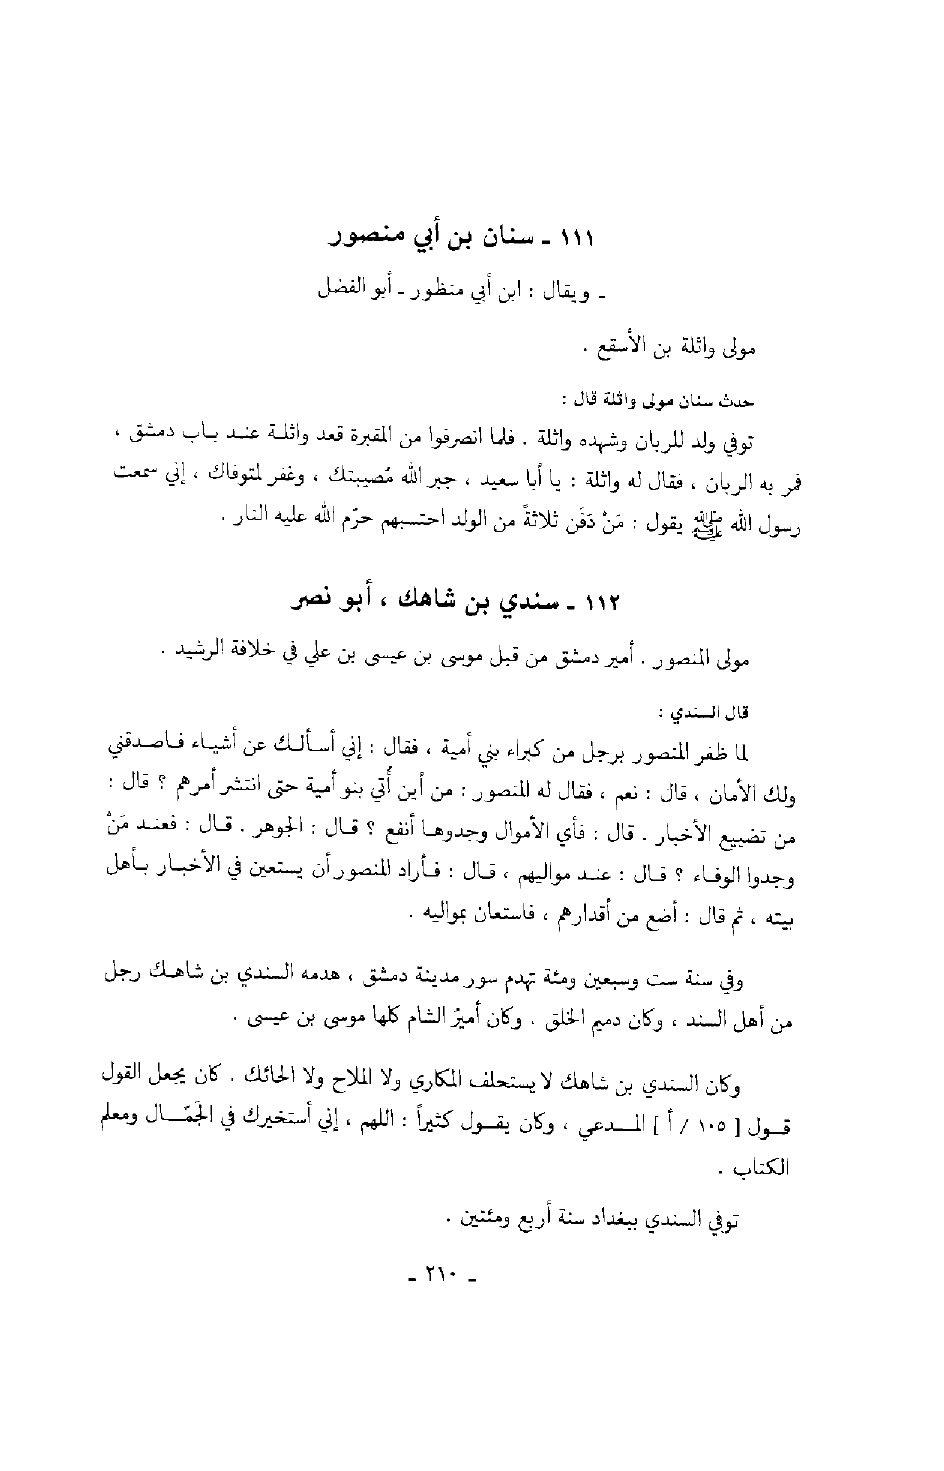 ١١١ ـ سنان بن أبي منصور
ـ ويقال : ابن أبي منظور ـ أبو الفضل
مولى واثلة بن الأسقع .
حدث سنان مولى واثلة قال :
توفي ولد للريان وشهده واثلة . فلما انصرفوا من المقبرة قعد واثلة عند باب دمشق ،
فمر به الريان ، فقال له واثلة : يا أبا سعيد ، جبر الله مُصيبتك ، وغفر لمتوفاك ، إني سمعت
رسول الله ﷺ يقول : مَنْ دَفَن ثلاثةً من الولد احتسبهم حرّم الله عليه النار .
١١٢ ـ سندي بن شاهك ، أبو نصر
مولى المنصور . أمير دمشق من قبل موسى بن عيسى بن علي في خلافة الرشيد .
قال السندي :
لما ظفر المنصور برجل من كبراء بني أمية ، فقال : إني أسألك عن أشياء فاصدقني
ولك الأمان ، قال : نعم ، فقال له المنصور : من أين أُتي بنو أمية حتى انتشر أمرهم ؟ قال :
من تضييع الأخبار . قال : فأي الأموال وجدوها أنفع ؟ قال : الجوهر . قال : فعند مَنْ
وجدوا الوفاء ؟ قال : عند مواليهم ، قال : فأراد المنصور أن يستعين في الأخبار بأهل
بيته ، ثم قال : أضع من أقدارهم ، فاستعان بمواليه .
وفي سنة ست وسبعين ومئة تهدم سور مدينة دمشق ، هدمه السندي بن شاهك رجل
من أهل السند ، وكان دميم الخلق . وكان أميرَ الشام كلها موسى بن عيسى .
وكان السندي بن شاهك لا يستحلف المكاري ولا الملاح ولا الحائك . كان يجعل القول
قول [ ١٠٥ / أ ] المدعي ، وكان يقول كثيراً : اللهم ، إني أستخيرك في الجَمّال ومعلم
الكتاب .
توفي السندي ببغداد سنة أربع ومئتين .
ـ ٢١٠ ـ